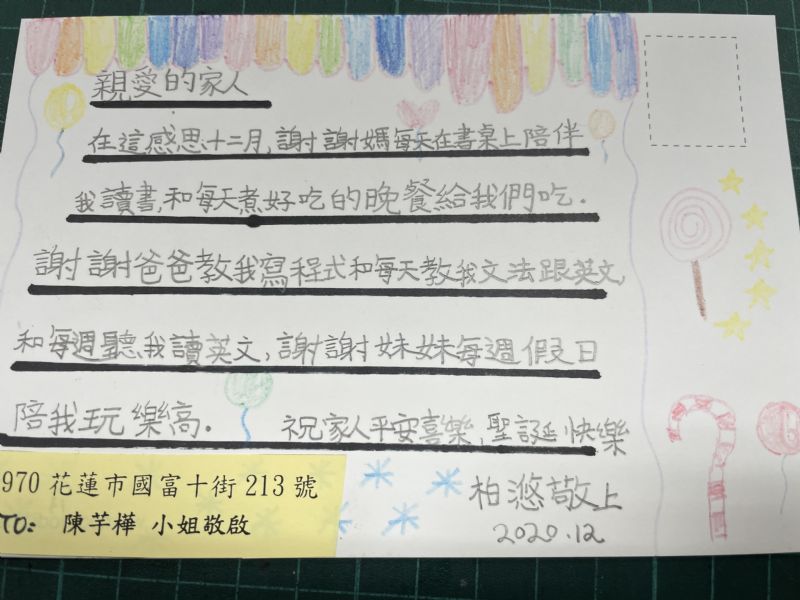 親愛的家人
在這感恩十二月,謝謝媽每天在書桌上陪伴
我讀書,和每天煮好吃的晚餐給我們吃.
謝謝爸爸教我寫程式和每天教我文法跟英文,
和每週聽我讀英文,謝謝妹妹每週假日
陪我玩樂高. 祝家人平安喜樂,聖誕快樂
柏悠敬上
2020.12
970 花蓮市國富十街 213 號
TO: 陳芋樺 小姐敬啟